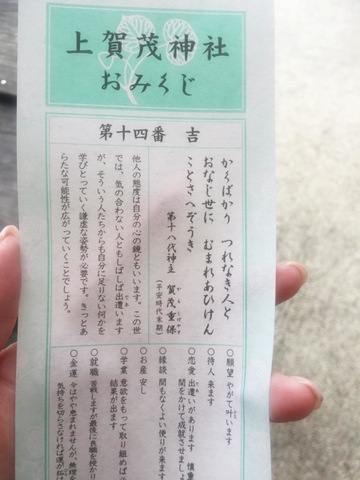 上賀茂神社
おみくじ
第十四番 吉
かくばかり つれなき人と
おなじ世に むまれあひけん
ことさへぞうき
第十八代神主 賀茂重保
かもしげやす
(平安時代末期)
他人の態度は自分の心の鏡ともいいます。この世
では、気の合わない人ともしばしば出遭います
が、そういう人たちからも自分に足りない何かを
学びとっていく謙虚な姿勢が必要です。きっとあ
らたな可能性が広がっていくことでしょう。
○願望 やがて叶います
○待人 来ます
○恋愛 出遭いがあります 慎重
間をかけて成就させましょ
○縁談 間もなくよい便りが来ます
○お産 安し
○学業 意欲をもって取り組めば必
結果が出ます
○就職 苦戦しますが最後に良職を授かり
○金運 今はやや恵まれませんが、無理を
気持ちを切らさなければ運が拓け